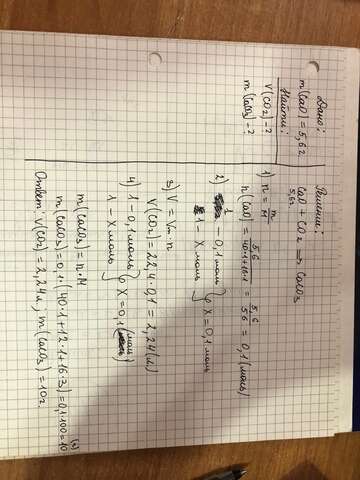 Дано:
m(CaO)=5,6г
Найти:
V(CO2)-?
m(CaCO3)-?
Решение:
CaO + CO2 => CaCO3
5,6г
1) n = m/M
n(CaO) = 5,6/40·1+16·1 = 5,6/56 = 0,1(моль)
2) 1 - 0,1 моль
1 - X моль } => X=0,1 моль
3) V = Vm·n
V(CO2) = 22,4·0,1 = 2,24(л)
4) 1 - 0,1 моль
1 - X моль } => X=0,1 (моль)
m(CaCO3) = n·M
m(CaCO3) = 0,1·(40·1+12·1+16·3)=0,1·100=10 (г)
Ответ: V(CO2) = 2,24л; m(CaCO3)=10г.